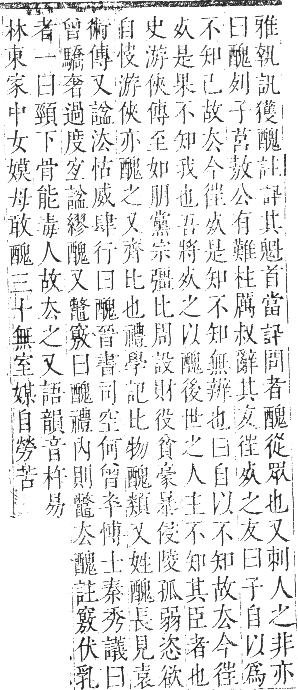 雅執訊獲醜註訊其魁首當訊問者醜從眾也又刺人之非亦
曰醜列子莒敖公有難柱厲叔辭其友徃死之友曰子自以爲
不知己故厺今徃死是知不知無辨也曰自以不知故厺今徃
死是果不知我也吾將死之以醜後世之人主不知其臣者也
史游俠傳至如朋黨宗彊比周設財役貧豪暴侵陵孤弱恣欲
自快游俠亦醜之又齊比也禮學記比物醜類又姓醜長見袁
術傳又諡法怙威肆行曰醜晉書司空何曾卒傅士秦秀議曰
曾驕奢過度宜諡繆醜又鼈竅曰醜禮內則鼈厺醜註竅伏乳
者一曰頸下骨能毒人故厺之又語韻音杵易
林東家中女嫫母敢醜三十無室媒自勞苦